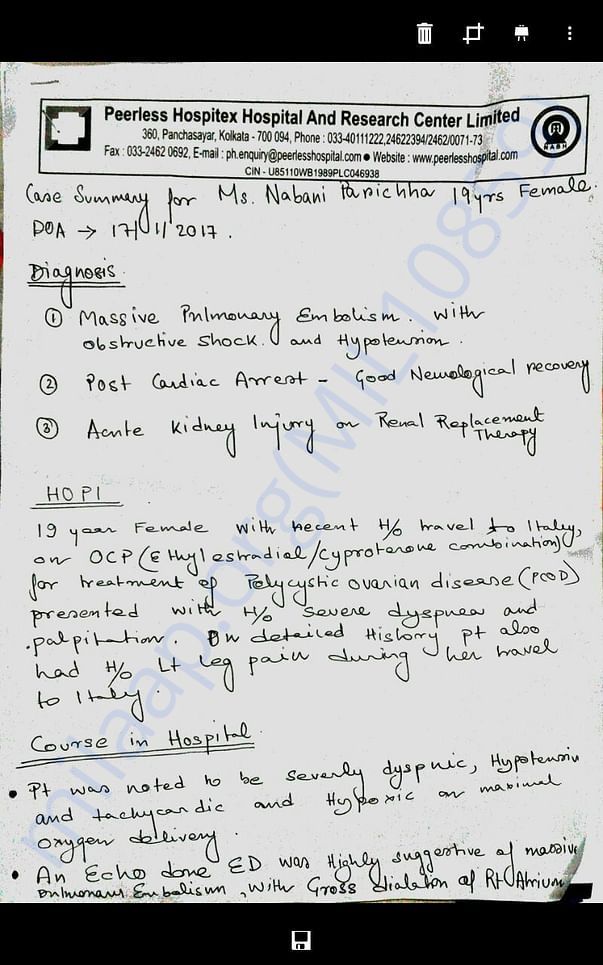 Peerless Hospitex Hospital And Research Center Limited
360, Panchasayar, Kolkata - 700 094, Phone : 033-40111222,24622394/2462/0071-73
Fax : 033-2462 0692, E-mail : ph.enquiry@peerlesshospital.com ● Website : www.peerlesshospital.com
CIN - U85110WB1989PLC046938
NABH
Case Summary for Ms. Nabani Parichha 19yrs Female.
DOA → 17/01/2017.
Diagnosis
① Massive Pulmonary Embolism. with
obstructive shock. and Hypotension.
② Post Cardiac Arrest - Good Neurological recovery
③ Acute Kidney Injury on Renal Replacement
Therapy
HOPI
19 year Female with recent H/o travel to Italy,
on OCP (Ethyl estradial/cyproterone combination)
for treatment of Polycystic ovarian disease (PCOD)
presented with H/o severe dyspnea and
palpitation. On detailed History pt also
had H/o Lt leg pain during her travel
to Italy.
Course in Hospital
• Pt was noted to be severly dyspnic, Hypotensive
and tachycardic and Hypoxic on maximal
oxygen delivery.
• An Echo done ED was Highly suggestive of massive
pulmonary Embolism, with Gross dialation of Rt Atrium
milaap.org(MIL10859)